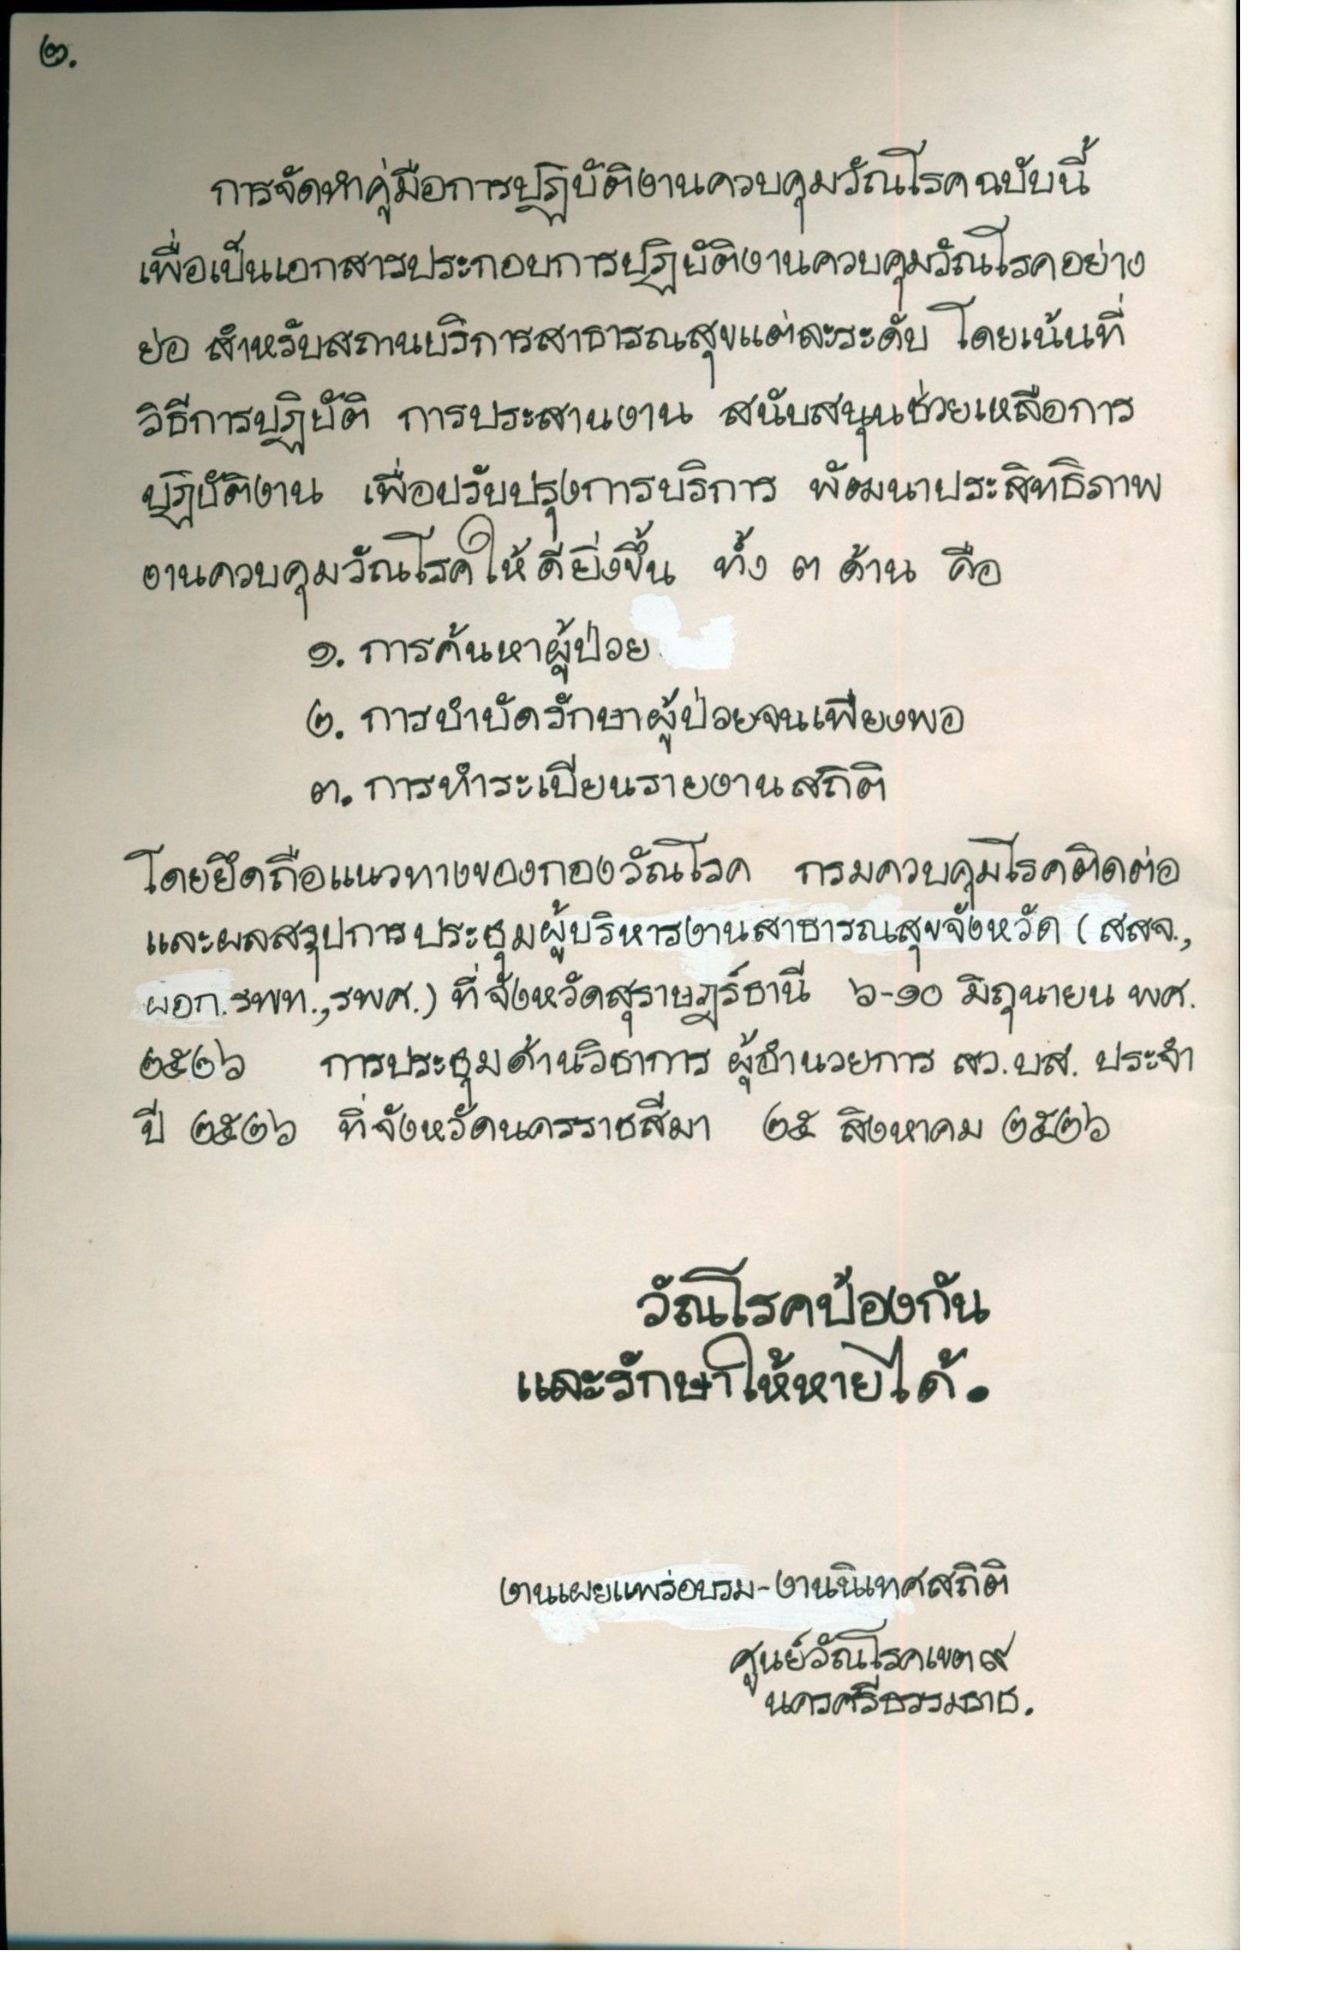 ๒.
การจัดทำคู่มือการปฏิบัติงานควบคุมวัณโรคฉบับนี้
เพื่อเป็นเอกสารประกอบการปฏิบัติงานควบคุมวัณโรคอย่าง
ย่อ สำหรับสถานบริการสาธารณสุขแต่ละระดับ โดยเน้นที่
วิธีการปฏิบัติ การประสานงาน สนับสนุนช่วยเหลือการ
ปฏิบัติงาน เพื่อปรับปรุงการบริการ พัฒนาประสิทธิภาพ
งานควบคุมวัณโรคให้ดียิ่งขึ้น ทั้ง ๓ ด้าน คือ
๑. การค้นหาผู้ป่วย
๒. การบำบัดรักษาผู้ป่วยจนเพียงพอ
๓. การทำระเบียนรายงานสถิติ
โดยยึดถือแนวทางของกองวัณโรค กรมควบคุมโรคติดต่อ
และผลสรุปการประชุมผู้บริหารงานสาธารณสุขจังหวัด (สสจ.,
ผอก.รพท.,รพศ.) ที่จังหวัดสุราษฎร์ธานี ๖-๑๐ มิถุนายน พศ.
๒๕๒๖ การประชุมด้านวิชาการ ผู้อำนวยการ สว.บส. ประจำ
ปี ๒๕๒๖ ที่จังหวัดนครราชสีมา ๒๕ สิงหาคม ๒๕๒๖
วัณโรคป้องกัน
และรักษาให้หายได้.
งานเผยแพร่อบรม-งานนิเทศสถิติ
ศูนย์วัณโรคเขต ๙
นครศรีธรรมราช.